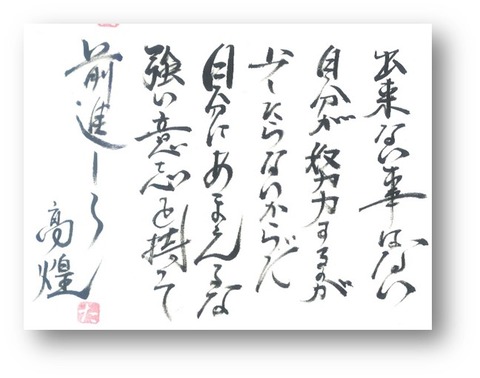 出来ない事はない
自分が努力するのが
少したらないからだ
自分にあまえるな
強い意志を持って
前進しろ
高煌
た